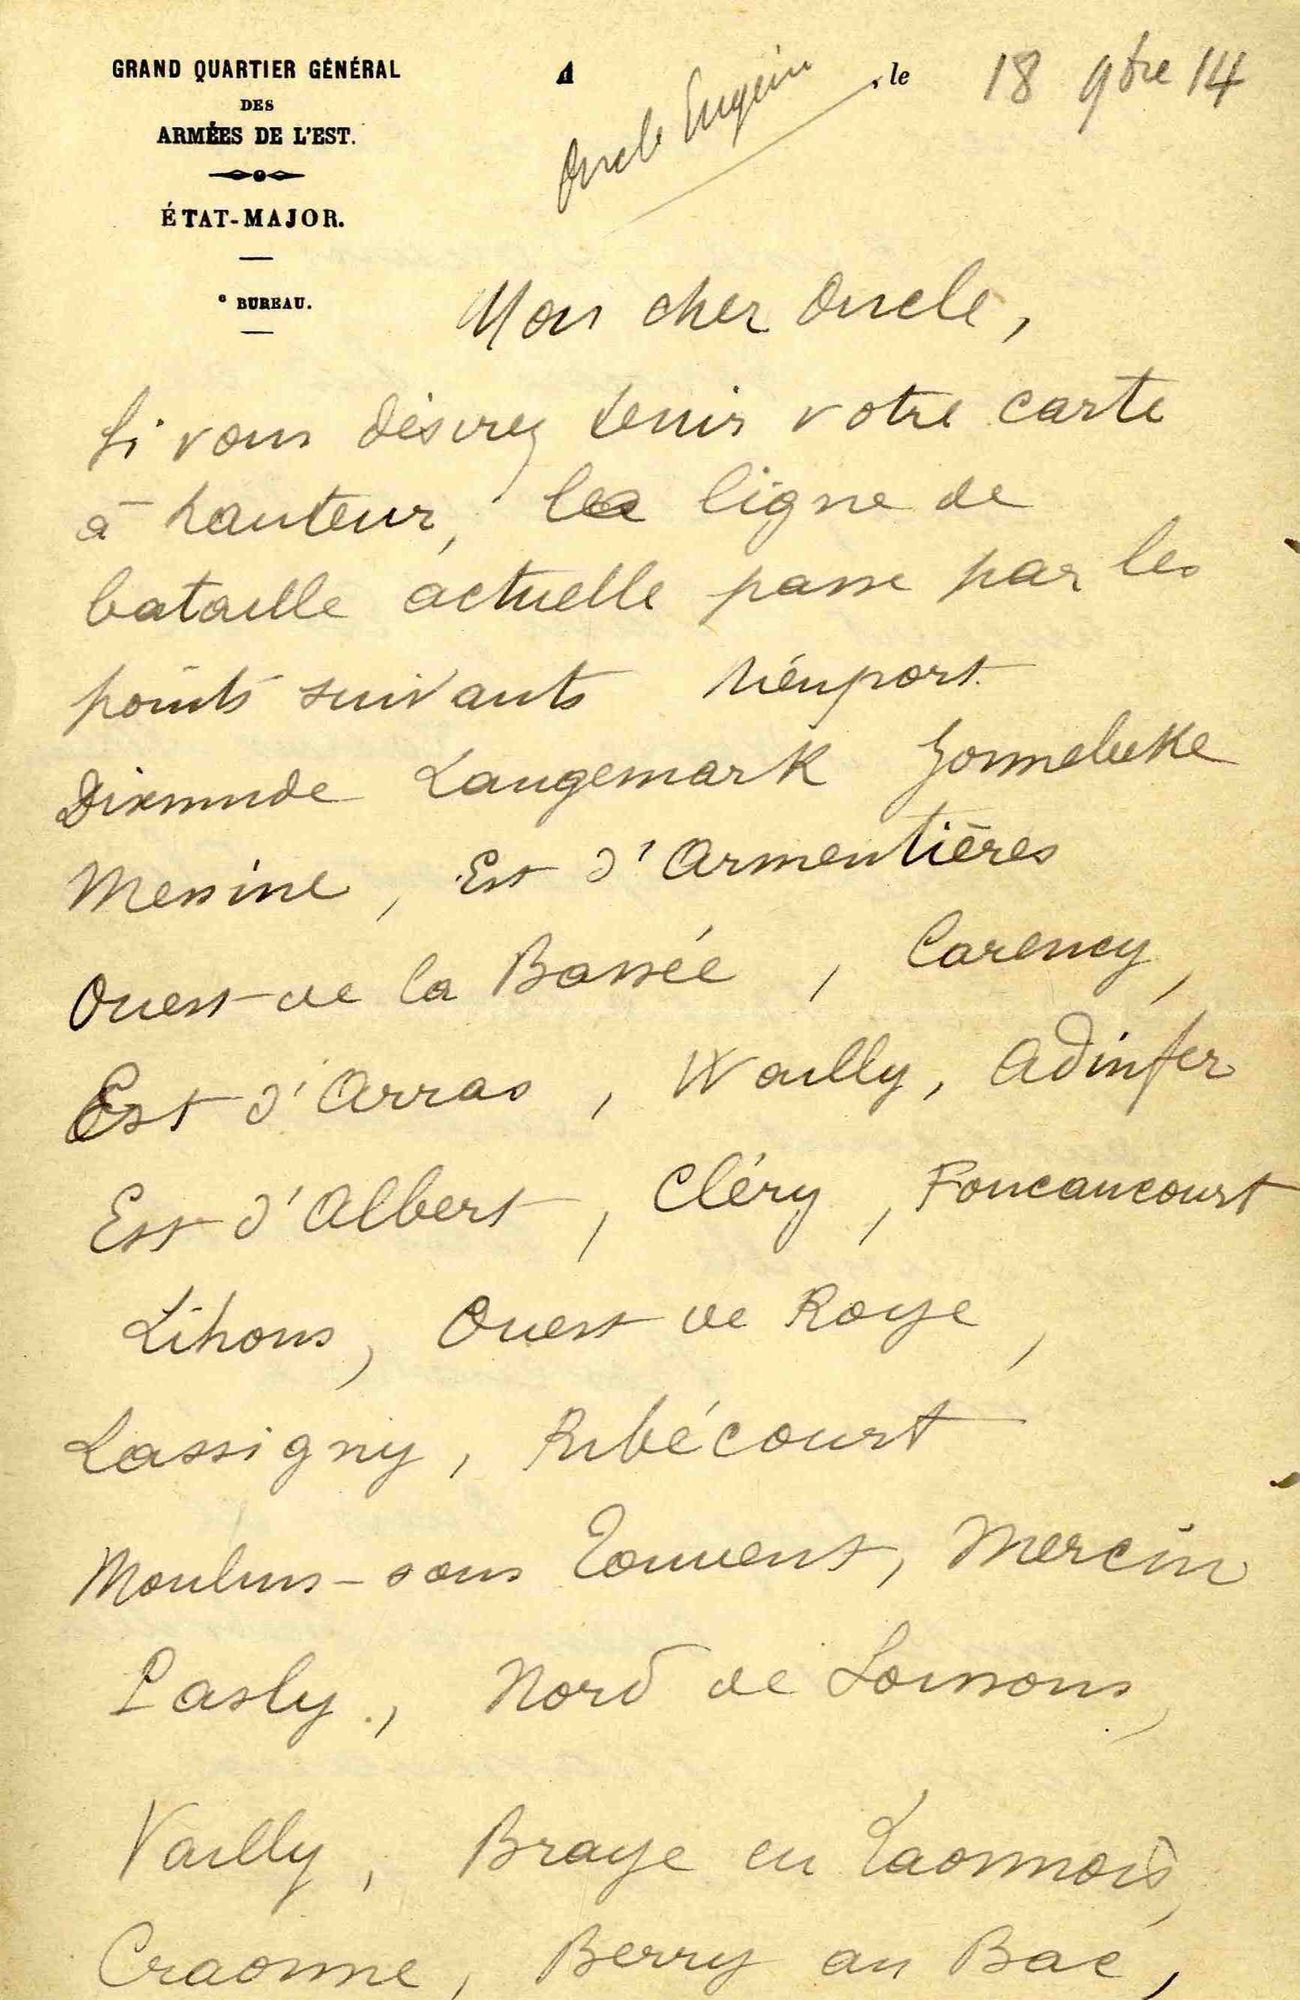 GRAND QUARTIER GÉNÉRAL
DES
ARMÉES DE L'EST.
ÉTAT-MAJOR.
e BUREAU.
A , le 18 9bre 14
Oncle Eugène
Mon cher Oncle,
Si vous désirez tenir votre carte
à hauteur, la ligne de
bataille actuelle passe par les
points suivants Niéuport.
Dixmude Langemark Zonnebeke
Messine, Est d'Armentières
Ouest de la Bassée, Carency,
Est d'Arras, Wailly, Adinfer
Est d'Albert, Cléry, Foucaucourt
Lihons, Ouest de Roye,
Lassigny, Ribécourt
Moulins-sous Touvent, Mercin
Pasly., Nord de Soissons,
Vailly, Braye en Laonnois,
Craonne, Berry au Bac,